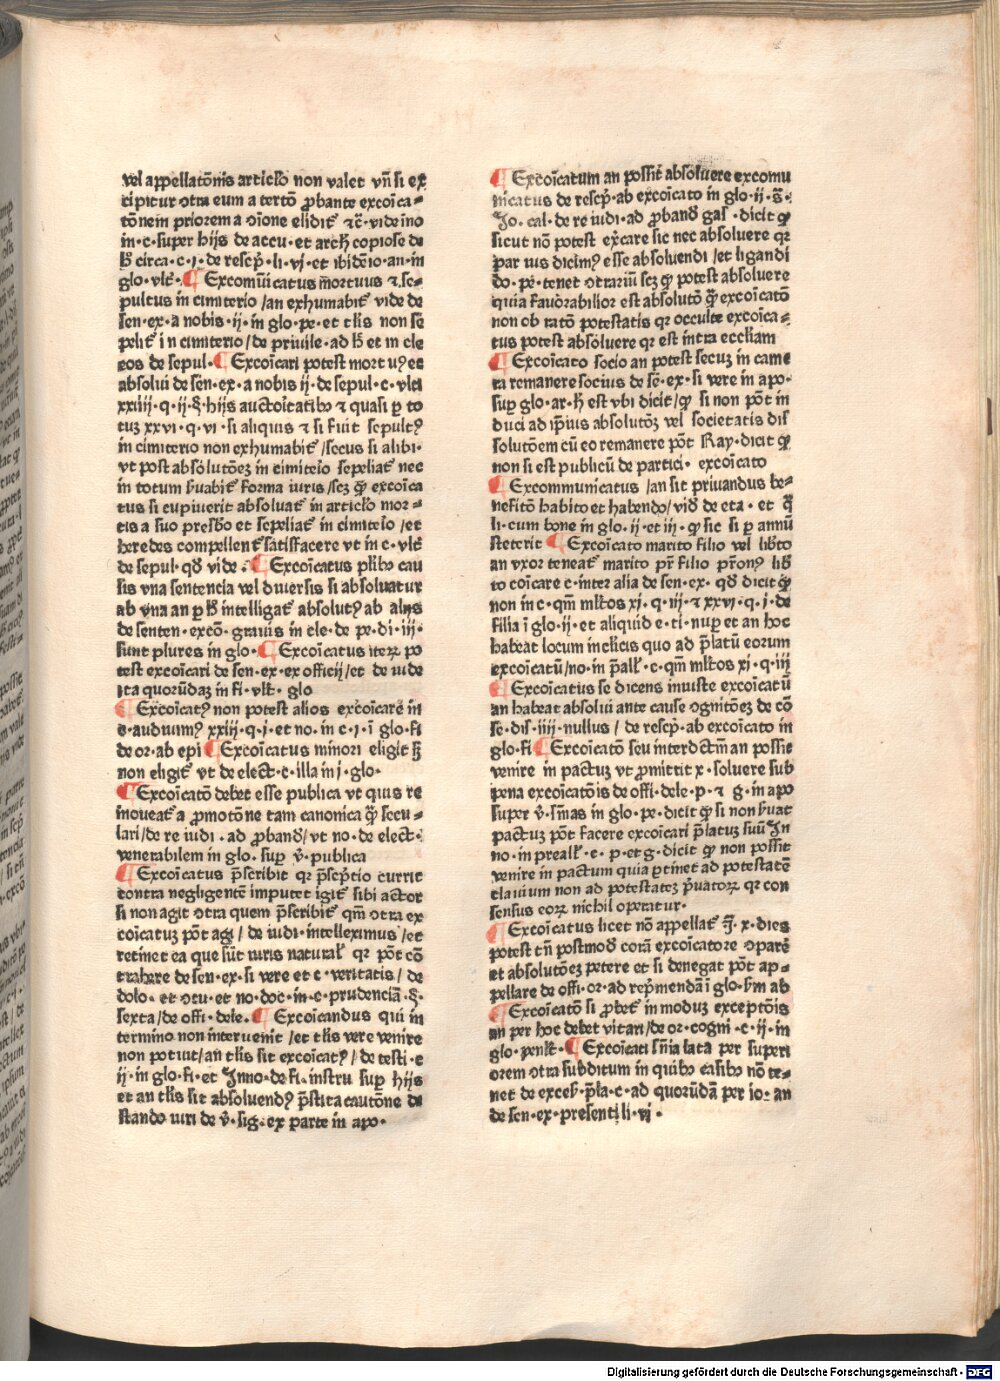 vel appellatōnis articl'o non valet vn̄ si ex
cipitur ɔtra eum a tertō ꝓbante excoīca⸗
tōnem priorem a ɔione elidit᷑ ⁊cꝫ · vide ino
in · c · super hijs de accu · et arch̄ copiose de
h̄ circa · c · j · de rescꝑ · li · vj · et ibidē io · an · in
glo · vlt᷑ · ¶ Excomūicatus mortuus ⁊ se⸗
pultus in cimiterio / an exhumabit᷑ vide de
sen · ex · a nobis · ij · in glo · pe · et tl'is non se
pelit᷑ in cimiterio / de priuile · ad h̄ et in cle
ros de sepul · ¶ Excoīcari potest mortuꝰ et
absolui de sen · ex · a nobis ij · de sepul · c · vlti
xxiiij · q · ij · §· hijs auctoītatibꝰ ⁊ quasi ꝑ to
tuꝫ xxvi · q · vi · si aliquis ⁊ si fuit sepultꝰ
in cimiterio non exhumabit᷑ / secus si alibi ·
vt post absolutōeꝫ in cimiteīo sepeliat᷑ nec
in totum ẜuabit᷑ forma iuris / scꝫ ꝙ excoīca
tus si cupiuerit absoluat᷑ in articl'o mor⸗
tis a suo presbꝰo et sepeliat᷑ in cimiteīo / et
heredes compellent᷑ satisfacere vt in c · vlt᷑
de sepul · qd̄ vide · ¶ Excoīcatus pl'ibꝰ cau
sis vna sentencia vel diuersis si absoluatur
ab vna an ꝑ h̄ intelligat᷑ absolutꝰ ab alijs
de senten · excō · grauis in cle · de pe · di · iij ·
sunt plures in glo · ¶ Excoīcatus iteꝝ po
test excoīcari de sen · ex · ex officij / et de iude
ita quorūdaꝫ in fi · vlt᷑ · glo
¶ Excoīcatꝰ non potest alios excoīcare in
c · audiuimꝰ xxiiij · q · j · et no · in c · j · ī glo · fi
de or · ab epi ¶ Excoīcatus minori eligit ẜꝫ
non eligit᷑ vt de elect · c · illa in j · glo ·
¶ Excoīcatō debet esse publica vt quis re
moueat᷑ a ꝓmotōne tam canonica ꝙ̄ secu⸗
lari / de re iudi · ad ꝓband̄ / vt no · de elect ·
venerabilem in glo · suꝑ v̄ · publica
¶ Excoīcatus p̄scribit qꝛ p̄scꝑtio currit
contra negligentē imputet igit᷑ sibi actor
si non agit ɔtra quem p̄scribit᷑ qm̄ ɔtra ex
coīcatuꝫ pōt agi / de iudi · intelleximus / et
retinet ea que sūt iuris natural' qꝛ pōt cō
trahere de sen · ex · si vere et c · veritatis / de
dolo · et ɔtu · et no · doc · in · c · prudenciā · §·
sexta / de offi · dele · ¶ Excoīcandus qui in
termino non interuenit / et tl'is vere venire
non potuit / an tl'is sit excoīcatꝰ / de testi · c
ij · in glo · fi · et Inno · de fi · instru suꝑ hijs
et an tl'is sit absoluendꝰ p̄stita cautōne de
stando iuri de v̄ · sig · ex parte in apo ·
¶ Excoīcatum an possit᷑ absoluere excomu
nicatus de rescꝑ · ab excoīcato in glo · ij · §·
Jo · cal · de re iudi · ad ꝓband̄ gaſ · dicit ꝙ
sicut nō potest ex̄care sic nec absoluere qꝛ
par ius dicimꝰ esse absoluendi / et ligandi
do · pe · tenet ɔtrariū scꝫ ꝙ potest absoluere
quia fauorabilior est absolutō ꝙ̄ excoīcatō
non ob ratō potestatis qꝛ occulte excoīca⸗
tus potest absoluere qꝛ est intra eccl'iam
¶ Excoīcato socio an potest secuꝫ in came
ra remanere socius de sē · ex · si vere in apo ·
suꝑ glo · ar · h̄ est vbi dicit / ꝙ si non pōt in
duci ad ip̄ius absolutōꝫ vel societatis dis
solutōem cū eo remanere pōt Ray · dicit ꝙ
non si est publicū de partici · excoīcato
¶ Excommunicatus / an sit priuandus be⸗
nefitō habito et habendo / vid̄ de eta · et q̄l
li · cum bone in glo · ij · et iij · ꝙ sic si ꝑ annū
steterit ¶ Excoīcato marito filio vel lib̄to
an vxor teneat᷑ marito pr̄ filio pr̄onꝰ lib̄
to coīcare c · inter alia de sen · ex · qd̄ dicit ꝙ
non in c · qm̄ ml'tos xi · q · iij · ⁊ xxvi · q · j · de
filia ī glo · ij · et aliquid e · ti · nuꝑ et an hoc
habeat locum in clicis quo ad p̄latū eorum
excoīcatū / no · in p̄all' · c · qm̄ ml'tos xi · q · iij
¶ Excoīcatus se dicens iniuste excoīcatū
an habeat absolui ante cause ɔgnitōeꝫ de cō
se · dis · iiij · nullus / de rescꝑ · ab excoīcato in
glo · fi ¶ Excoīcatō seu interdctm̄ an possit
venire in pactuꝫ vt ꝓmittit x · soluere sub
pena excoīcatōis de offi · dele · p · ⁊ g · in apo
super v̄ · sn̄ias in glo · pe · dicit ꝙ si non ẜuat
pactuꝫ pōt facere excoīcari p̄latus suū In
no · in preall' · c · p · et g · dicit ꝙ non possit
venire in pactum quia ꝑtinet ad potestatē
clauium non ad potestateꝫ p̄uatoꝝ qꝛ con
sensus eoꝝ nichil operatur ·
¶ Excoīcatus licet nō appellat᷑ īfra · x · dies
potest tn̄ postmod̄ corā excoīcatore ɔparē
et absolutōeꝫ petere et si denegat pōt ap⸗
pellare de offi · or · ad rep̄mendā ī glo · ẜm ab
¶ Excoīcatō si ꝓbet᷑ in moduꝫ exceptōis
an per hoc debet vitari / de or · cogni · c · ij · in
glo · penl't · ¶ Excoīcati sn̄ia lata per superi
orem ɔtra subditum in quibꝰ casibꝰ nō te⸗
net de exceẜ · p̄la · c · ad quorūdā per io · an
de sen · ex · presenti li · vj ·
Digitalisierung gefördert durch die Deutsche Forschungsgemeinschaft · DFG